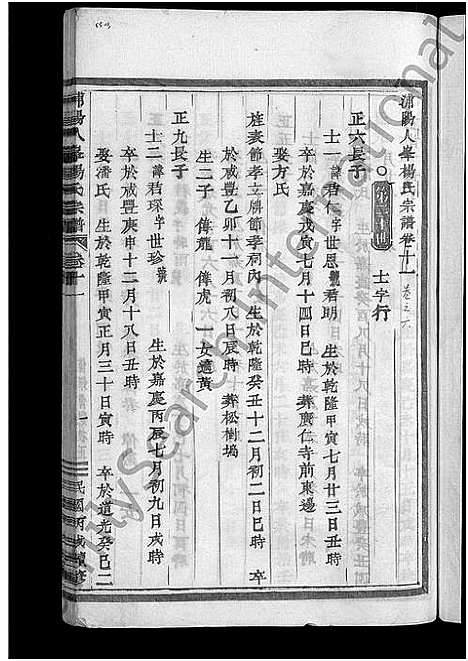 浦陽人峯楊氏宗譜卷十一 卷之一
第三十世 士字行
正六長子
士一 諱君仁字世恩號君明 生於乾隆甲寅七月廿三日丑時
卒於嘉慶戊寅七月十四日巳時 葬廣仁寺前東邊
娶方氏
旌表節孝立牌節孝祠內 生於乾隆癸丑十二月初二日巳時 卒
於咸豐乙卯十一月初八日辰時 葬松樹塢
生二子 傳龍 傳虎 一女適黃
正九長子
士二 諱君琛字世珍號 生於嘉慶丙辰七月初九日戌時
卒於咸豐庚申十二月十八日丑時
娶潘氏 生於乾隆甲寅正月三十日寅時 卒於道光癸巳二
浦陽人峯楊氏宗譜 卷十一 一 民國丙戌續修
FamilySearch International